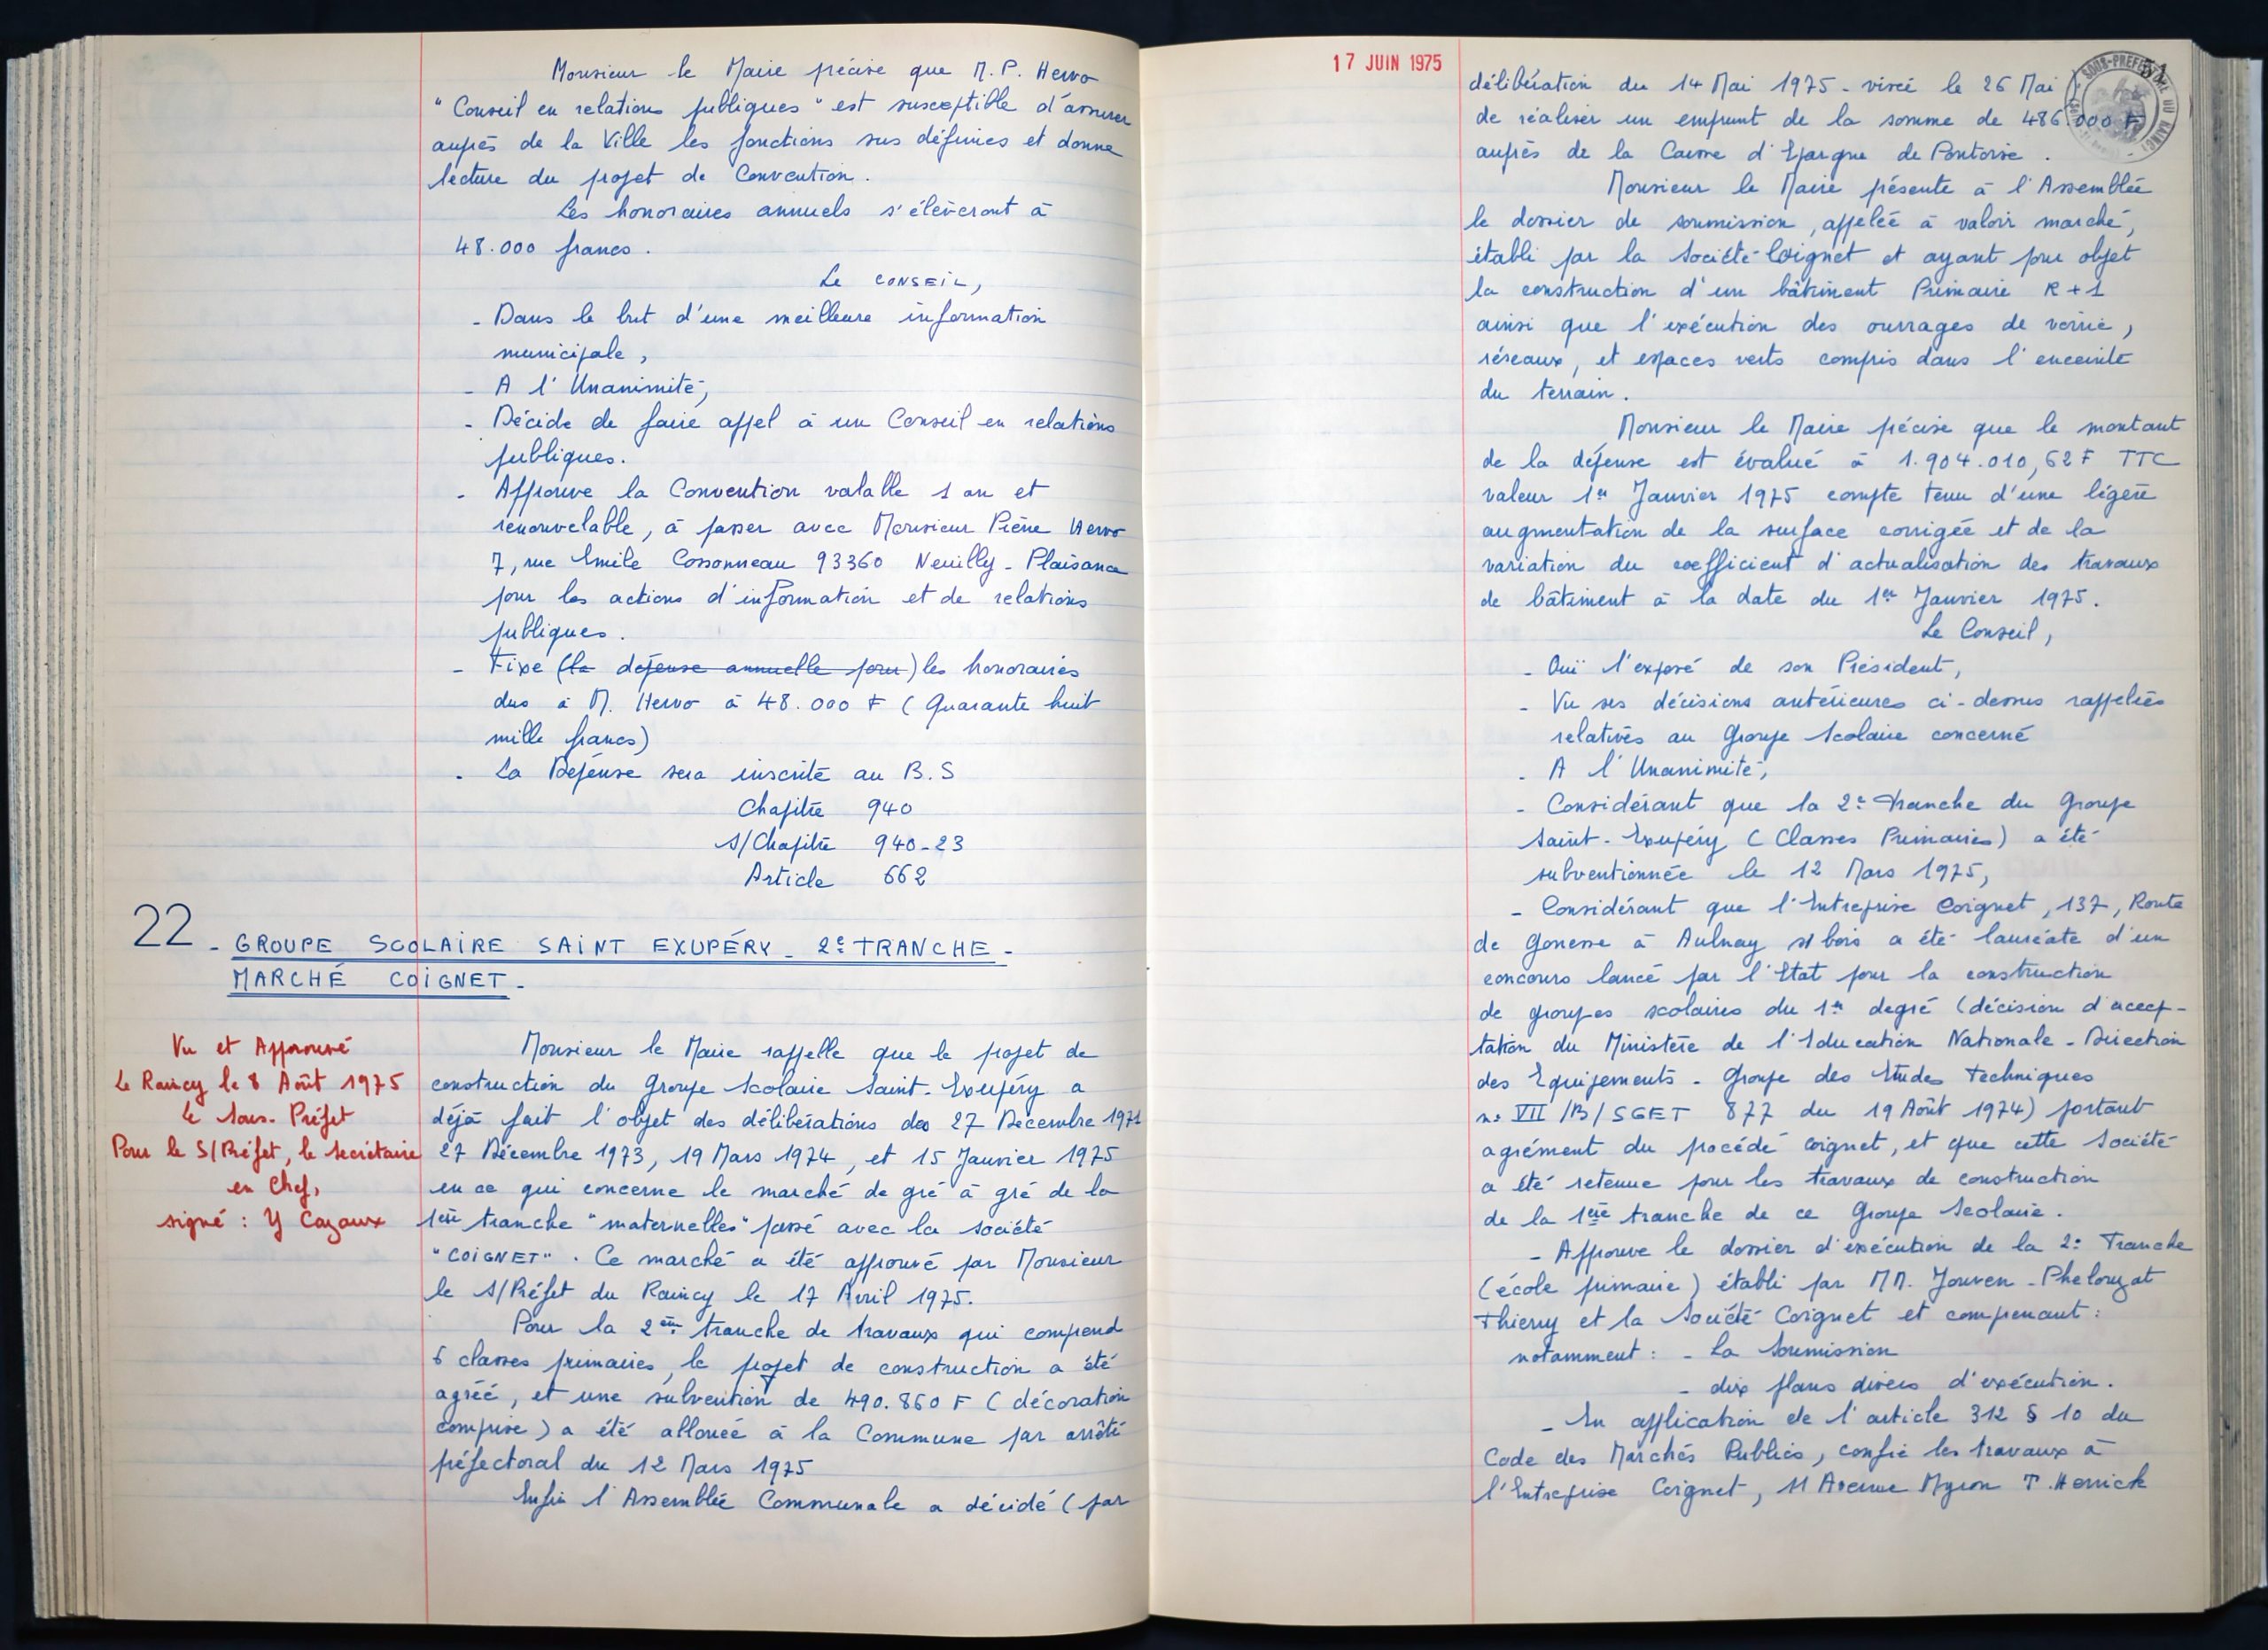 Monsieur le Maire précise que M. P. Hervo
"Conseil en relations publiques" est susceptible d'assurer
auprès de la Ville les fonctions sus définies et donne
lecture du projet de Convention.
Les honoraires annuels s'élèveront à
48.000 francs.
Le CONSEIL,
- Dans le but d'une meilleure information
municipale,
- A l'Unanimité,
- Décide de faire appel à un Conseil en relations
publiques.
- Approuve la Convention valable 1 an et
renouvelable, à passer avec Monsieur Pierre Hervo
7, rue Emile Cossonneau 93360 Neuilly-Plaisance
pour les actions d'information et de relations
publiques.
- Fixe (la dépense annuelle pour) les honoraires
dus à M. Hervo à 48.000 F (Quarante huit
mille francs)
- La Dépense sera inscrite au B.S
Chapitre 940
S/Chapitre 940-23
Article 662
22 - GROUPE SCOLAIRE SAINT EXUPÉRY - 2e TRANCHE -
MARCHÉ COIGNET -
Vu et Approuvé
Le Raincy le 8 Août 1975
Le Sous-Préfet
Pour le S/Préfet, le Secrétaire
en Chef,
signé : Y Cazaux
Monsieur le Maire rappelle que le projet de
construction du Groupe Scolaire Saint-Exupéry a
déjà fait l'objet des délibérations des 27 Décembre 1971
27 Décembre 1973, 19 Mars 1974, et 15 Janvier 1975
en ce qui concerne le marché de gré à gré de la
1ère tranche "maternelles" passé avec la société
"COIGNET". Ce marché a été approuvé par Monsieur
le S/Préfet du Raincy le 17 Avril 1975.
Pour la 2ème tranche de travaux qui comprend
6 classes primaires, le projet de construction a été
agréé, et une subvention de 490.860 F (décoration
comprise) a été allouée à la Commune par arrêté
préfectoral du 12 Mars 1975
Enfin l'Assemblée Communale a décidé (par
17 JUIN 1975
délibération du 14 Mai 1975 - visée le 26 Mai)
de réaliser un emprunt de la somme de 486.000 F
auprès de la Caisse d'Epargne de Pontoise.
Monsieur le Maire présente à l'Assemblée
le dossier de soumission, appelée à valoir marché,
établi par la Société Coignet et ayant pour objet
la construction d'un bâtiment Primaire R+1
ainsi que l'exécution des ouvrages de voirie,
réseaux, et espaces verts compris dans l'enceinte
du terrain.
Monsieur le Maire précise que le montant
de la dépense est évalué à 1.904.010,62 F TTC
valeur 1er Janvier 1975 compte tenu d'une légère
augmentation de la surface corrigée et de la
variation du coefficient d'actualisation des travaux
de bâtiment à la date du 1er Janvier 1975.
Le Conseil,
- Ouï l'exposé de son Président,
- Vu ses décisions antérieures ci-dessus rappelées
relatives au Groupe Scolaire concerné
- A l'Unanimité,
- Considérant que la 2e tranche du Groupe
Saint-Exupéry (Classes Primaires) a été
subventionnée le 12 Mars 1975,
- Considérant que l'Entreprise Coignet, 137, Route
de Gonesse à Aulnay s/ bois a été lauréate d'un
concours lancé par l'Etat pour la construction
de groupes scolaires du 1er degré (décision d'accep-
tation du Ministère de l'Education Nationale - Direction
des Equipements - Groupe des Etudes Techniques
n° VII /B/ SGET 877 du 19 Août 1974) portant
agrément du procédé Coignet, et que cette Société
a été retenue pour les travaux de construction
de la 1ère tranche de ce Groupe Scolaire.
- Approuve le dossier d'exécution de la 2e Tranche
(école primaire) établi par MM. Jouven - Phelouzat
Thierry et la Société Coignet et comprenant :
notamment : - La Soumission
- dix plans divers d'exécution.
- En application de l'article 312 § 10 du
Code des Marchés Publics, confie les travaux à
l'Entreprise Coignet, 11 Avenue Myron T. Herrick